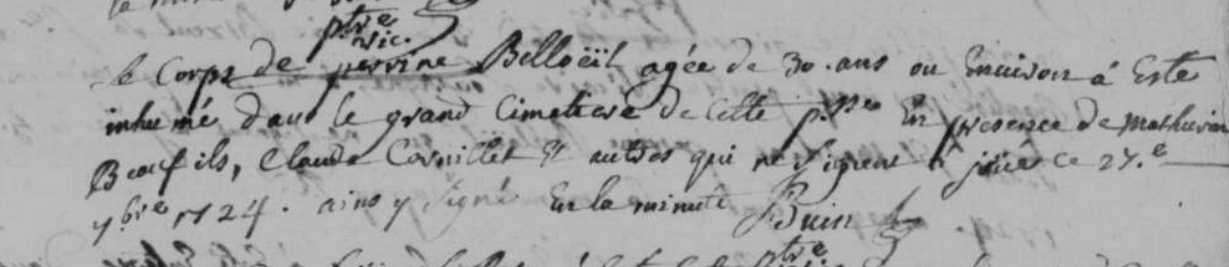 ptre
vic.
le Corps de perrine Belloëil agée de 30. ans ou Environ á Esté
inhumé dans le grand Cimetiere de Cette p.sse En presence de Mathurin
Beaufils, Claude Cornillet & autres qui ne signent á joüé ce 27.e
7.bre 1724. ainsy signé En la minute Buin
ptre